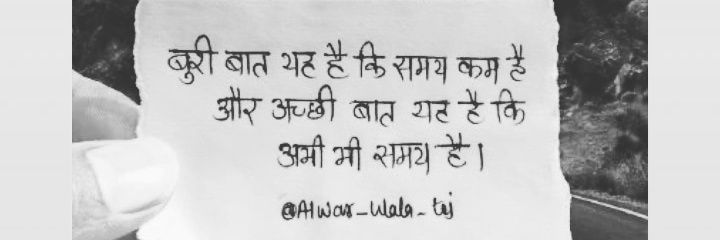 बुरी बात यह है कि समय कम है
और अच्छी बात यह है कि
अभी भी समय है।
@Alwar_Wala_tej